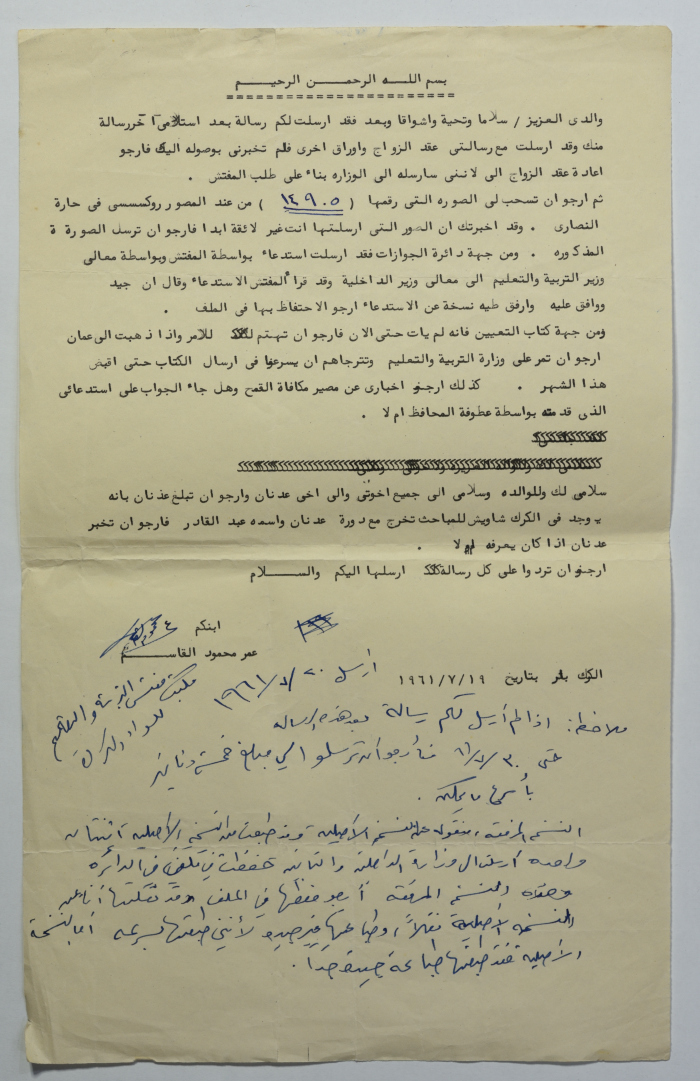 بسم اللـه الرحمـن الرحيـم
والدى العزيز / سلاما وتحية واشواقا وبعد فقد ارسلت لكم رسالة بعد استلامى آخر رسالة
منك وقد ارسلت مع رسالتى عقد الزواج واوراق اخرى فلم تخبرنى بوصوله اليك فارجو
اعادة عقد الزواج الى لاننى سارسله الى الوزاره بناء على طلب المفتش .
ثم ارجو ان تسحب لى الصوره التى رقمها ( ١٤٩٠٥ ) من عند المصور روكسسى فى حارة
النصارى . وقد اخبرتك ان الصور التى ارسلتها انت غير لائقة ابدا فارجو ان ترسل الصورة ة
المذكوره . ومن جهة دائرة الجوازات فقد ارسلت استدعاء بواسطة المفتش وبواسطة معالى
وزير التربية والتعليم الى معالى وزير الداخلية وقد قرأ المفتش الاستدعاء وقال ان جيد
ووافق عليه وارفق طيه نسخة عن الاستدعاء ارجو الاحتفاظ بها فى الملف .
ومن جهة كتاب التعيين فانه لم يات حتى الان فارجو ان تهتم للامر واذا ذهبت الى عمان
ارجو ان تمر على وزارة التربية والتعليم وتترجاهم ان يسرعوا فى ارسال الكتاب حتى اقبض
هذا الشهر . كذلك ارجو اخبارى عن مصير مكافاة القمح وهل جاء الجواب على استدعائى
الذى قدمته بواسطة عطوفة المحافظ ام لا .
سلامى لك وللوالده وسلامى الى جميع اخوتى والى اخى عدنان وارجو ان تبلغ عدنان بانه
يوجد فى الكرك شاويش للمباحث تخرج مع دورة عدنان واسمه عبد القادر فارجو ان تخبر
عدنان اذا كان يعرفه ام لا .
ارجو ان تردوا على كل رسالة ارسلها اليكم والســـلام
ابنكم
عمر محمود القاســـم
الكرك بتاريخ ١٩٦١/٧/١٩
أرسل ٢٠/٧/١٩٦١
مكتب مفتش التربية والتعليم
للواء الكرك
ملاحظة: اذا لم أرسل لكم رسالة بعد هذه الرسالة
حتى ٣٠/٧/٦١ فأرجو ان ترسلوا لي مبلغ خمسة دنانير
بأسرع ما يمكن .
النسخة المرفقة منقولة عن النسخة الأصلية وقد طبعت من النسخة الأصلية اثنتان
واحدة أرسلت الى وزارة الداخلية والثانية حفظت في ملفي في الدائرة
وهذه النسخة المرفقة أرجو حفظها في الملف وقد نقلتها أنا عن
النسخة الأصلية نقلاً، وطباعتها غير جيدة لأنني طبعتها بسرعة أما النسخة
الأصلية فقد طبعتها طباعة جيدة جداً .